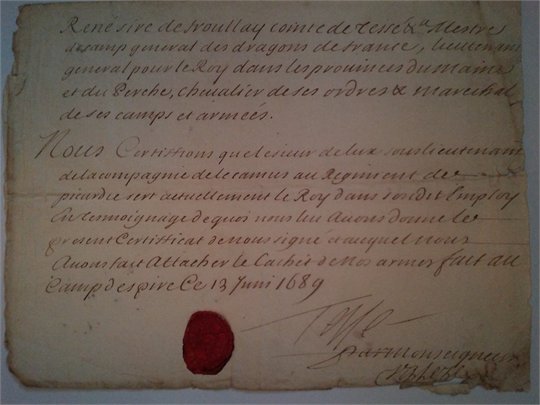 René sire de froullay comte de Tessé &a Mestre
de camp general des dragons de france, lieutenant
general pour le Roy dans les provinces du Maine
et du Perche, chevalier de ses ordres & marechal
de ses camps et armées.
Nous Certiffions que le sieur de lux souslieutenant
de la compagnie de le camus au Regiment de
picardie sert actuellement le Roy dans son dit Employ
En temoignage de quoi nous luy Avons donné le
present Certificat de Nous signé et auquel nous
Avons fait Attacher le Cachet de Nos armes fait au
Camp despire Ce 13 Juni 1689
Tesse
par Monseigneur